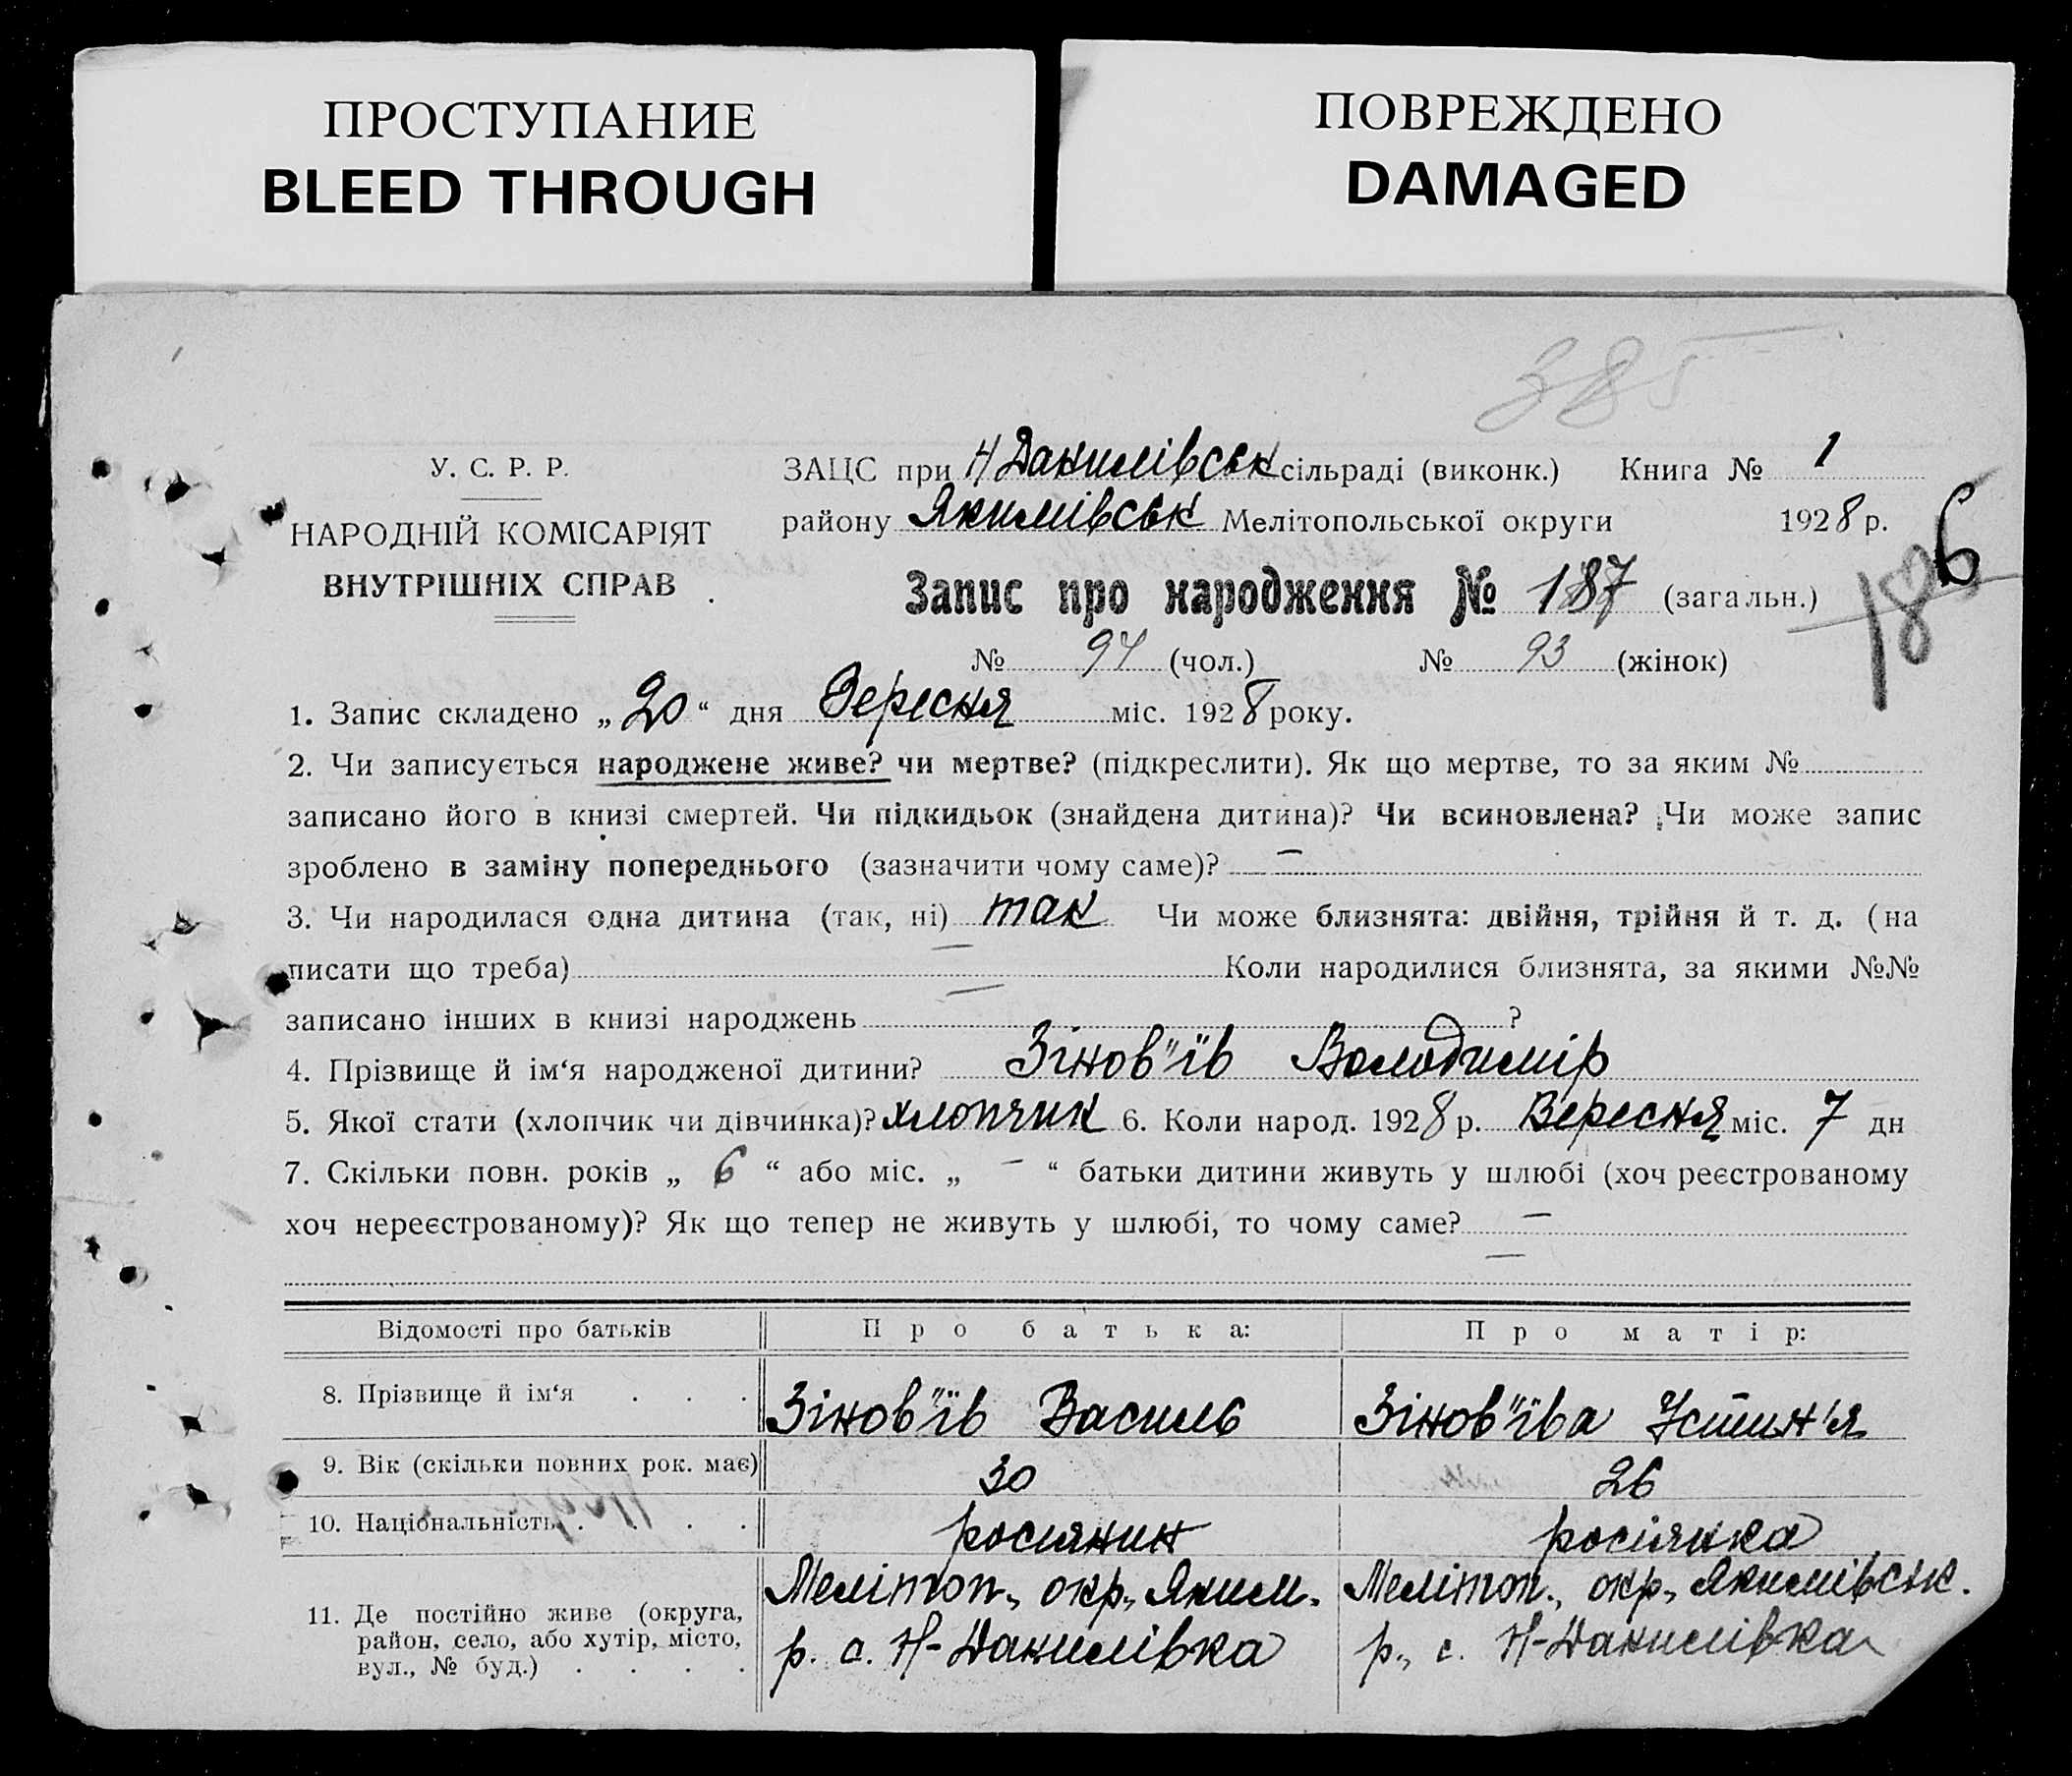 ПРОСТУПАНИЕ
BLEED THROUGH
ПОВРЕЖДЕНО
DAMAGED
385
У. С. Р. Р.
НАРОДНІЙ КОМІСАРІЯТ
ВНУТРІШНІХ СПРАВ
ЗАЦС при Н Данилівськ сільраді (виконк.) Книга № 1
району Якимівськ Мелітопольської округи 1928 р.
186
Запис про народження № 187 (загальн.)
№ 94 (чол.) № 93 (жінок)
1. Запис складено „20“ дня Вересня міс. 1928 року.
2. Чи записується народжене живе? чи мертве? (підкреслити). Як що мертве, то за яким №
записано його в книзі смертей. Чи підкидьок (знайдена дитина)? Чи всиновлена? Чи може запис
зроблено в заміну попереднього (зазначити чому саме)? —
3. Чи народилася одна дитина (так, ні) так Чи може близнята: двійня, трійня й т. д. (на
писати що треба) — Коли народилися близнята, за якими №№
записано інших в книзі народжень — ?
4. Прізвище й ім‘я народженої дитини? Зінов"їв Володимір
5. Якої стати (хлопчик чи дівчинка)? хлопчик 6. Коли народ. 1928 р. Вересня міс. 7 дн
7. Скільки повн. років „ 6 “ або міс. „ — “ батьки дитини живуть у шлюбі (хоч реєстрованому
хоч нереєстрованому)? Як що тепер не живуть у шлюбі, то чому саме? —
—
Відомості про батьків Про батька: Про матір:
8. Прізвище й ім‘я . . . Зінов"їв Василь Зінов"їва Устин'я
9. Вік (скільки повних рок. має) 30 26
10. Національність . . . . росиянин росіянка
11. Де постійно живе (округа, район, село, або хутір, місто, вул., № буд.) . . . .
Меліпоп., окр., Яким.
р. с. Н-Данилівка
Меліпоп., окр., Якимівськ.
р., с. Н-Данилівка